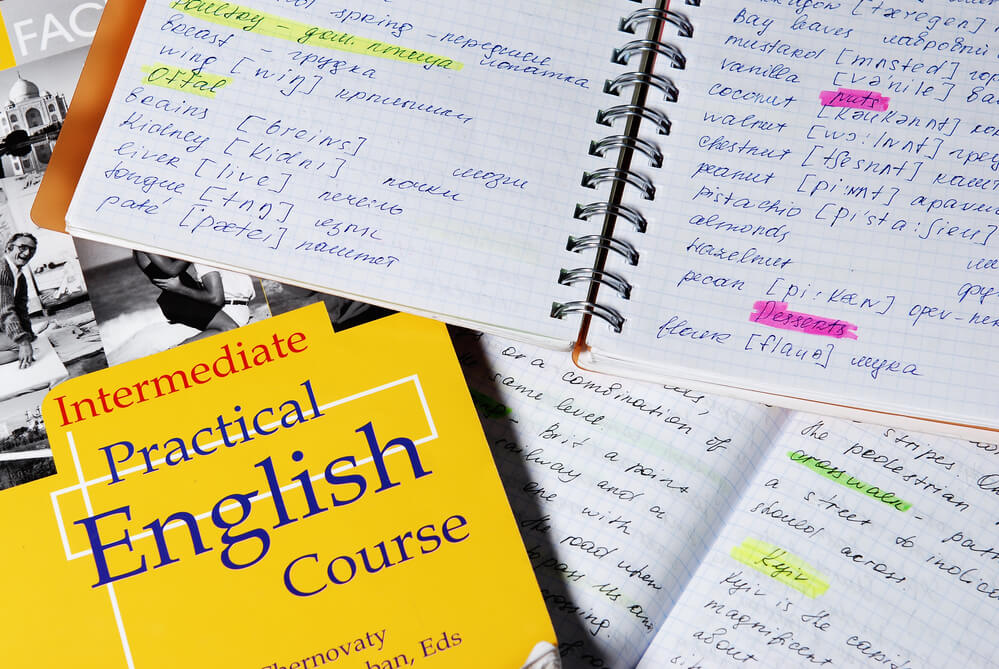 FAC
spring - передние
Poultry - дом. птица лопатка
breast - грудка
wing [wiŋ] крылышки
Offal
brains [breins] мозги
kidney [kidni] почки
liver [live] печень
tongue [tʌŋ] язык
paté ['pætei] паштет
[tæregen]
Bay leaves лавровый
mustard [mʌsted] гор
vanilla [və'nile] ва
coconut [kəukənʌt] ко
nuts
walnut [wɔ:lnʌt] гре
chestnut [tʃesnʌt] кашт
peanut [pi:nʌt] арахи
pistachio [pi'sta:ʃieu]
almonds
hazelnut
pecan [pi:kæn] орех-пек
Desserts
flour [flauə] мука
Intermediate
Practical
English
Course
Chernovaty
ban, Eds
or a combination of
same level.
Brit a point
railway and a
one with
the road when
to pass us an
rossing.
stripes. On
the pedestrian
crosswalk - path
a street to indica
should across.
Kyiv
Kyiv is the capi
magnificent
about